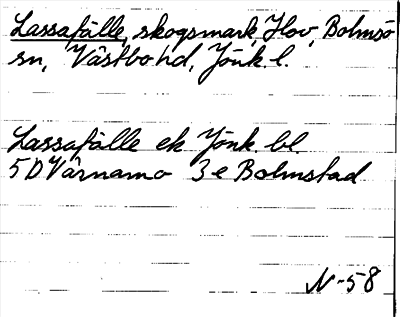 Lassafälle, skogsmark, Hov, Bolmsö
sn, Västbo hd, Jönk l.
Lassafälle ek Jönk bl
5D Värnamo 3e Bolmstad
N-58